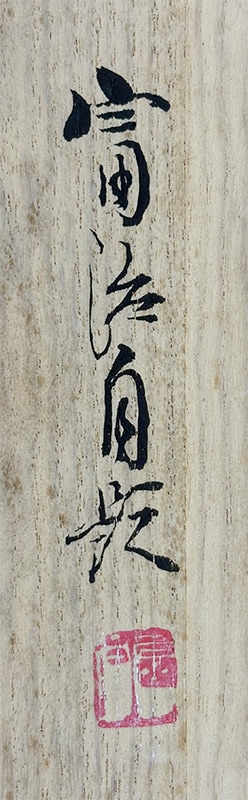 富治自題